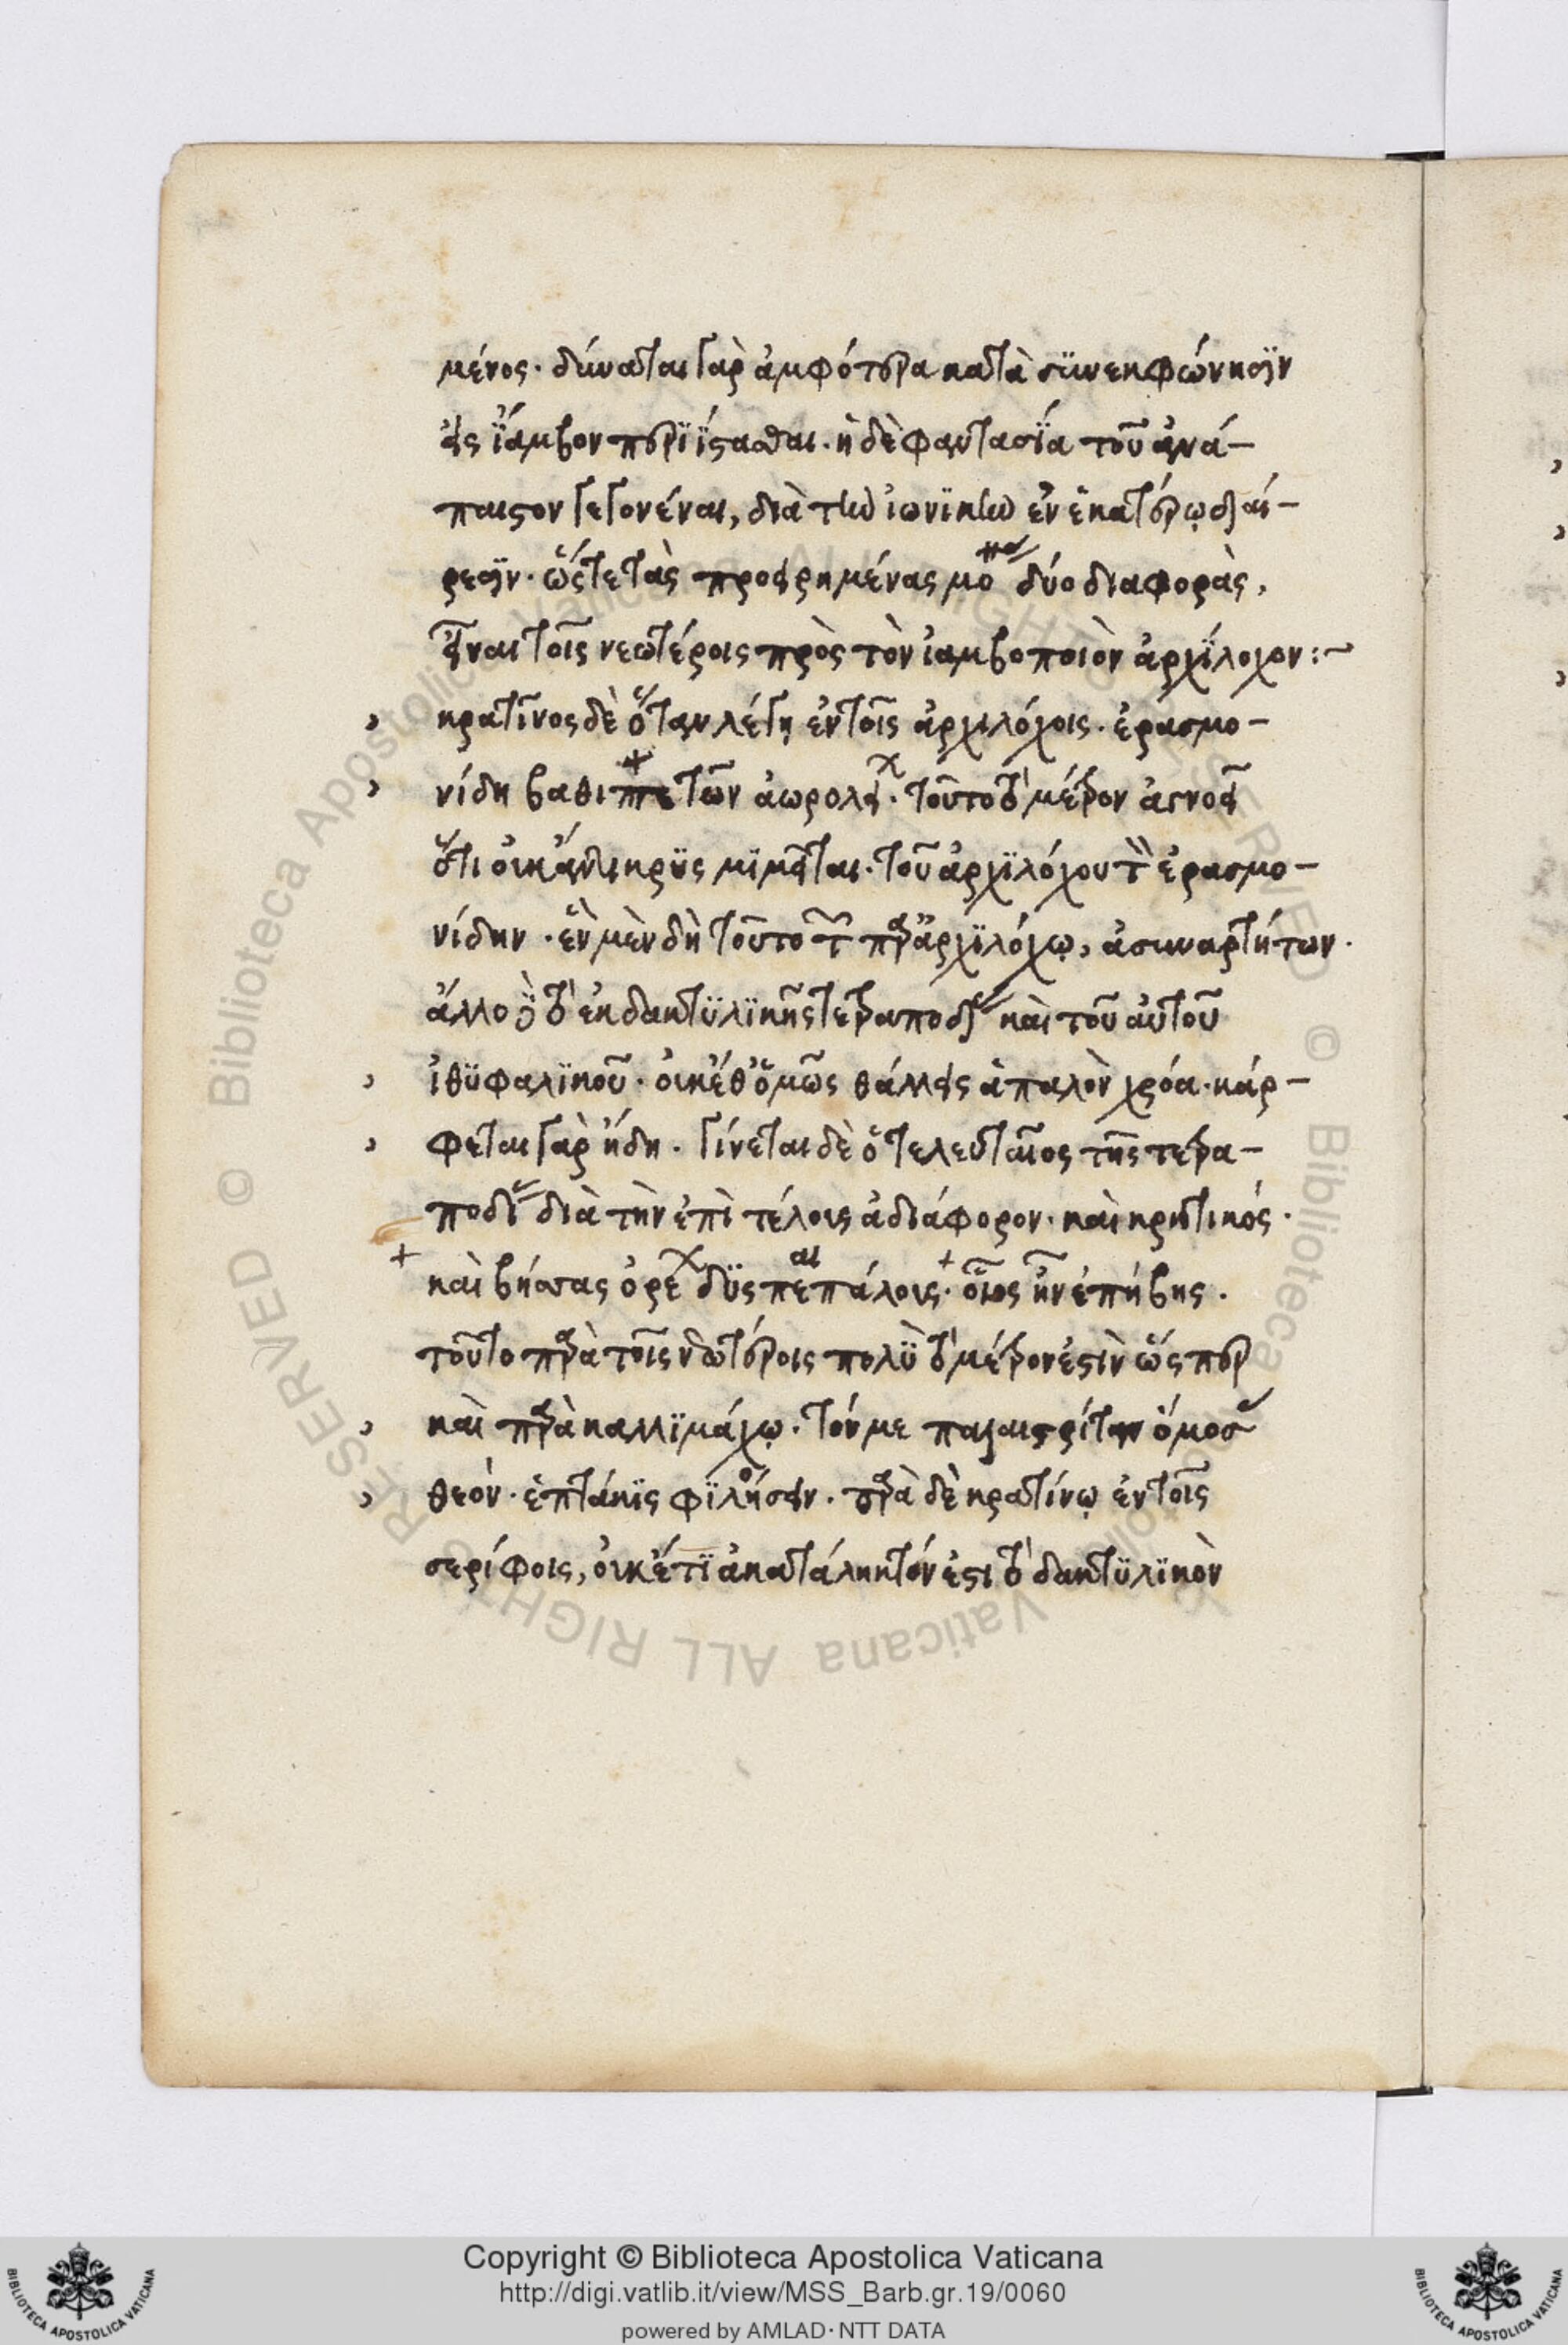 μένος· δύναται γὰρ ἀμφότερα κατὰ συνεκφώνησιν
εἰς ἴαμβον περιΐστασθαι· ἡ δὲ φαντασία τοῦ ἀνά–
παιστον γεγονέναι, διὰ τὴν ἰωνικὴν ἐν ἑκατέρῳ διαί–
ρεσιν· ὥστε τὰς προειρημένας μο πα δύο διαφορὰς,
εἶναι τοῖς νεωτέροις πρὸς τὸν ἰαμβοποιὸν ἀρχίλοχον:~
κρατῖνος δὲ ὅταν λέγη ἐν τοῖς ἀρχιλόχοις· ἐρασμο–
νίδη βαθιππε τῶν ἀωρολει χ· τοῦτο τὸ μέτρον ἀγνοεῖ
ὅτι οὐκ ἄντικρυς μιμεῖται· τοῦ ἀρχιλόχου τὸ ἐρασμο–
νίδην· ἓν μὲν δὴ τοῦτο τ παρ ἀρχιλόχῳ, ἀσυναρτήτων·
ἄλλο δὲ τὸ ἐκ δακτυλικῆς τετραποδίας καὶ τοῦ αὐτοῦ
ἰθυφαλικοῦ· οὐκέθ' ὅμῶς θάλλεις ἁπαλὸν χρόα· κάρ–
φεται γὰρ ἤδη· γίνεται δὲ ὁ τελευταῖος τῆς τετρα–
ποδίας διὰ τὴν ἐπὶ τέλους ἀδιάφορον· καὶ κρητικός·
καὶ βήσσας ὀρέ χ δυσπεπάλους· οἷος ἦν ἐπήβης·
τοῦτο παρὰ τοῖς νεωτέροις πολὺ τὸ μέτρον ἐστὶν ὥσπερ
καὶ παρὰ καλλιμάχῳ· τόν με παλαιστρίταν ὁμοσ
θεόν· ἑπτάκις φιλήσειν· παρὰ δὲ κρατίνῳ ἐν τοῖς
σερίφοις, οὐκέτι ἀκατάληκτόν ἐστι τὸ δακτυλικὸν
Copyright © Biblioteca Apostolica Vaticana
http://digi.vatlib.it/view/MSS_Barb.gr.19/0060
powered by AMLAD · NTT DATA